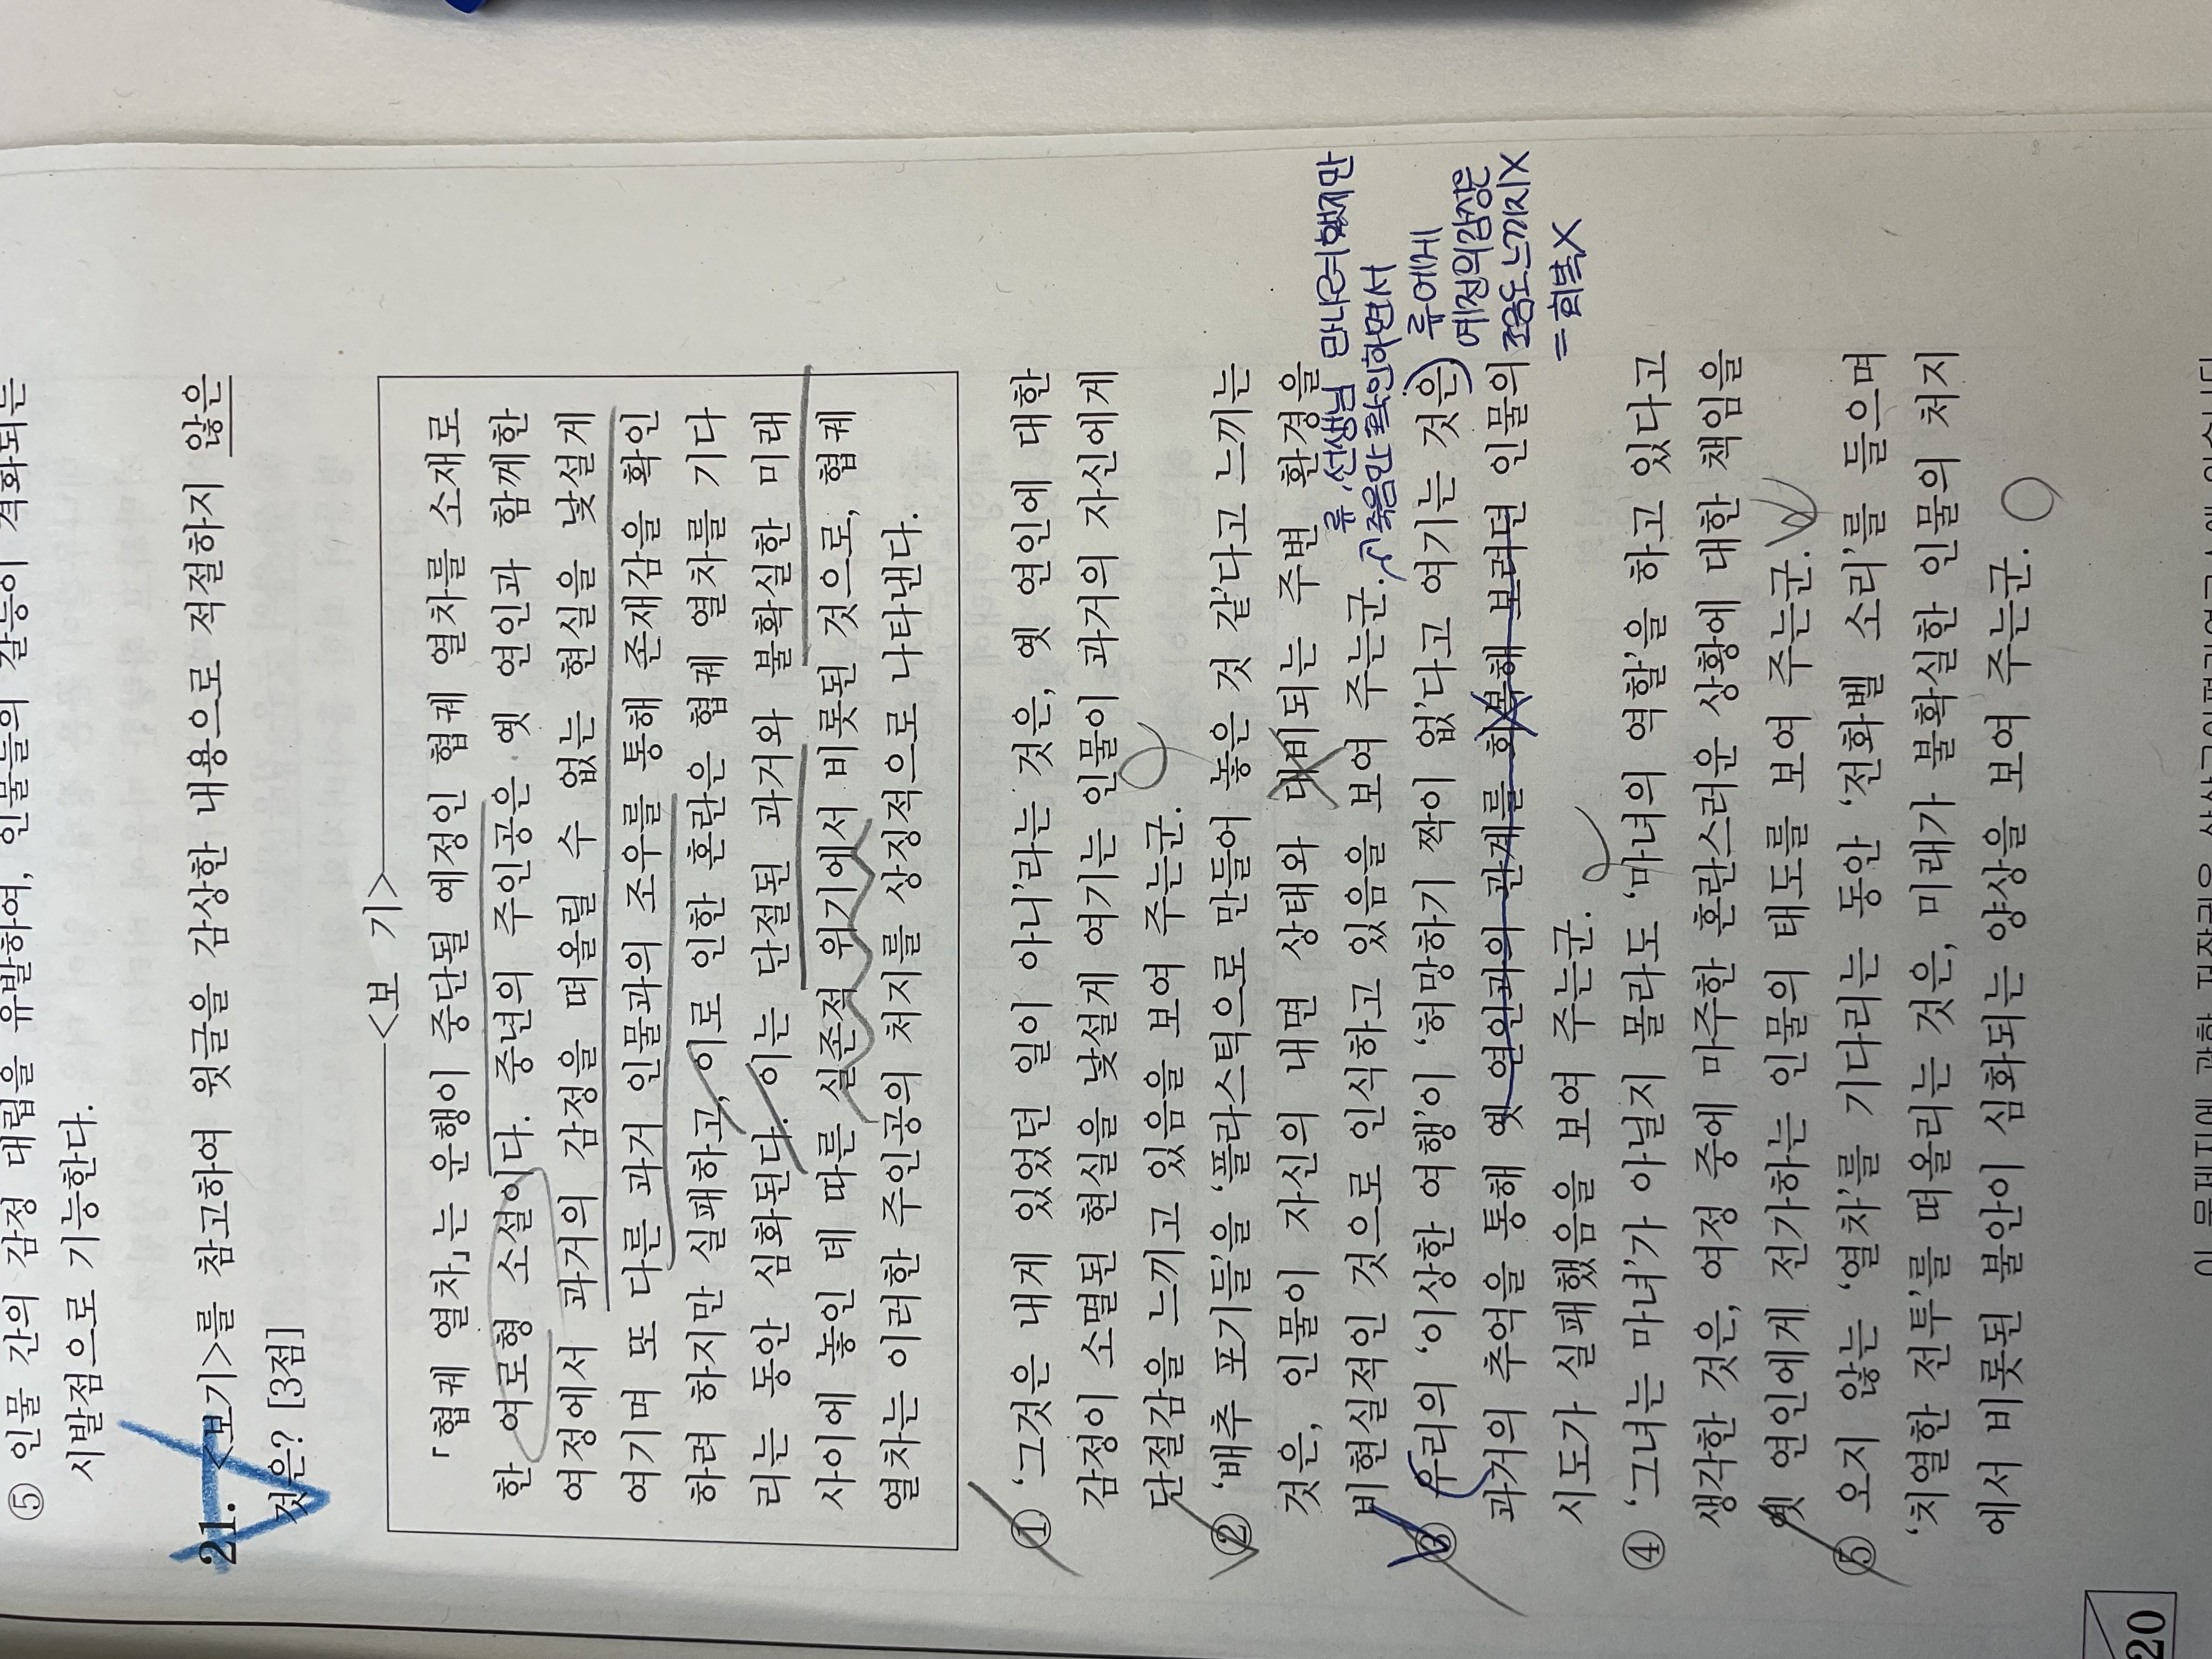 ⑤ 인물 간의 감정 대립을 유발하여, 인물들의 갈등이 격화되는
시발점으로 기능한다.
21. <보기>를 참고하여 윗글을 감상한 내용으로 적절하지 않은
것은? [3점]
<보 기>
「협궤 열차」는 운행이 중단될 예정인 협궤 열차를 소재로
한 여로형 소설이다. 중년의 주인공은 옛 연인과 함께한
여정에서 과거의 감정을 떠올릴 수 없는 현실을 낯설게
여기며 또 다른 과거 인물과의 조우를 통해 존재감을 확인
하려 하지만 실패하고, 이로 인한 혼란은 협궤 열차를 기다
리는 동안 심화된다. 이는 단절된 과거와 불확실한 미래
사이에 놓인 데 따른 실존적 위기에서 비롯된 것으로, 협궤
열차는 이러한 주인공의 처지를 상징적으로 나타낸다.
① ‘그것은 내게 있었던 일이 아니’라는 것은, 옛 연인에 대한
감정이 소멸된 현실을 낯설게 여기는 인물이 과거의 자신에게
단절감을 느끼고 있음을 보여 주는군.
② ‘배추 포기들’을 ‘플라스틱으로 만들어 놓은 것 같’다고 느끼는
것은, 인물이 자신의 내면 상태와 대비되는 주변 환경을
비현실적인 것으로 인식하고 있음을 보여 주는군.
류, 선생님 만나려 했지만
죽음만 확인하면서
③ 우리의 ‘이상한 여행’이 ‘허망하기 짝이 없’다고 여기는 것은,
과거의 추억을 통해 옛 연인과의 관계를 회복해 보려던 인물의
시도가 실패했음을 보여 주는군.
류에게
예전의 감정은
조응도 느끼지 X
= 회복 X
④ ‘그녀는 마녀’가 아닐지 몰라도 ‘마녀의 역할’을 하고 있다고
생각한 것은, 여정 중에 마주한 혼란스러운 상황에 대한 책임을
옛 연인에게 전가하는 인물의 태도를 보여 주는군.
⑤ 오지 않는 ‘열차’를 기다리는 동안 ‘전화벨 소리’를 들으며
‘치열한 전투’를 떠올리는 것은, 미래가 불확실한 인물의 처지
에서 비롯된 불안이 심화되는 양상을 보여 주는군.
20